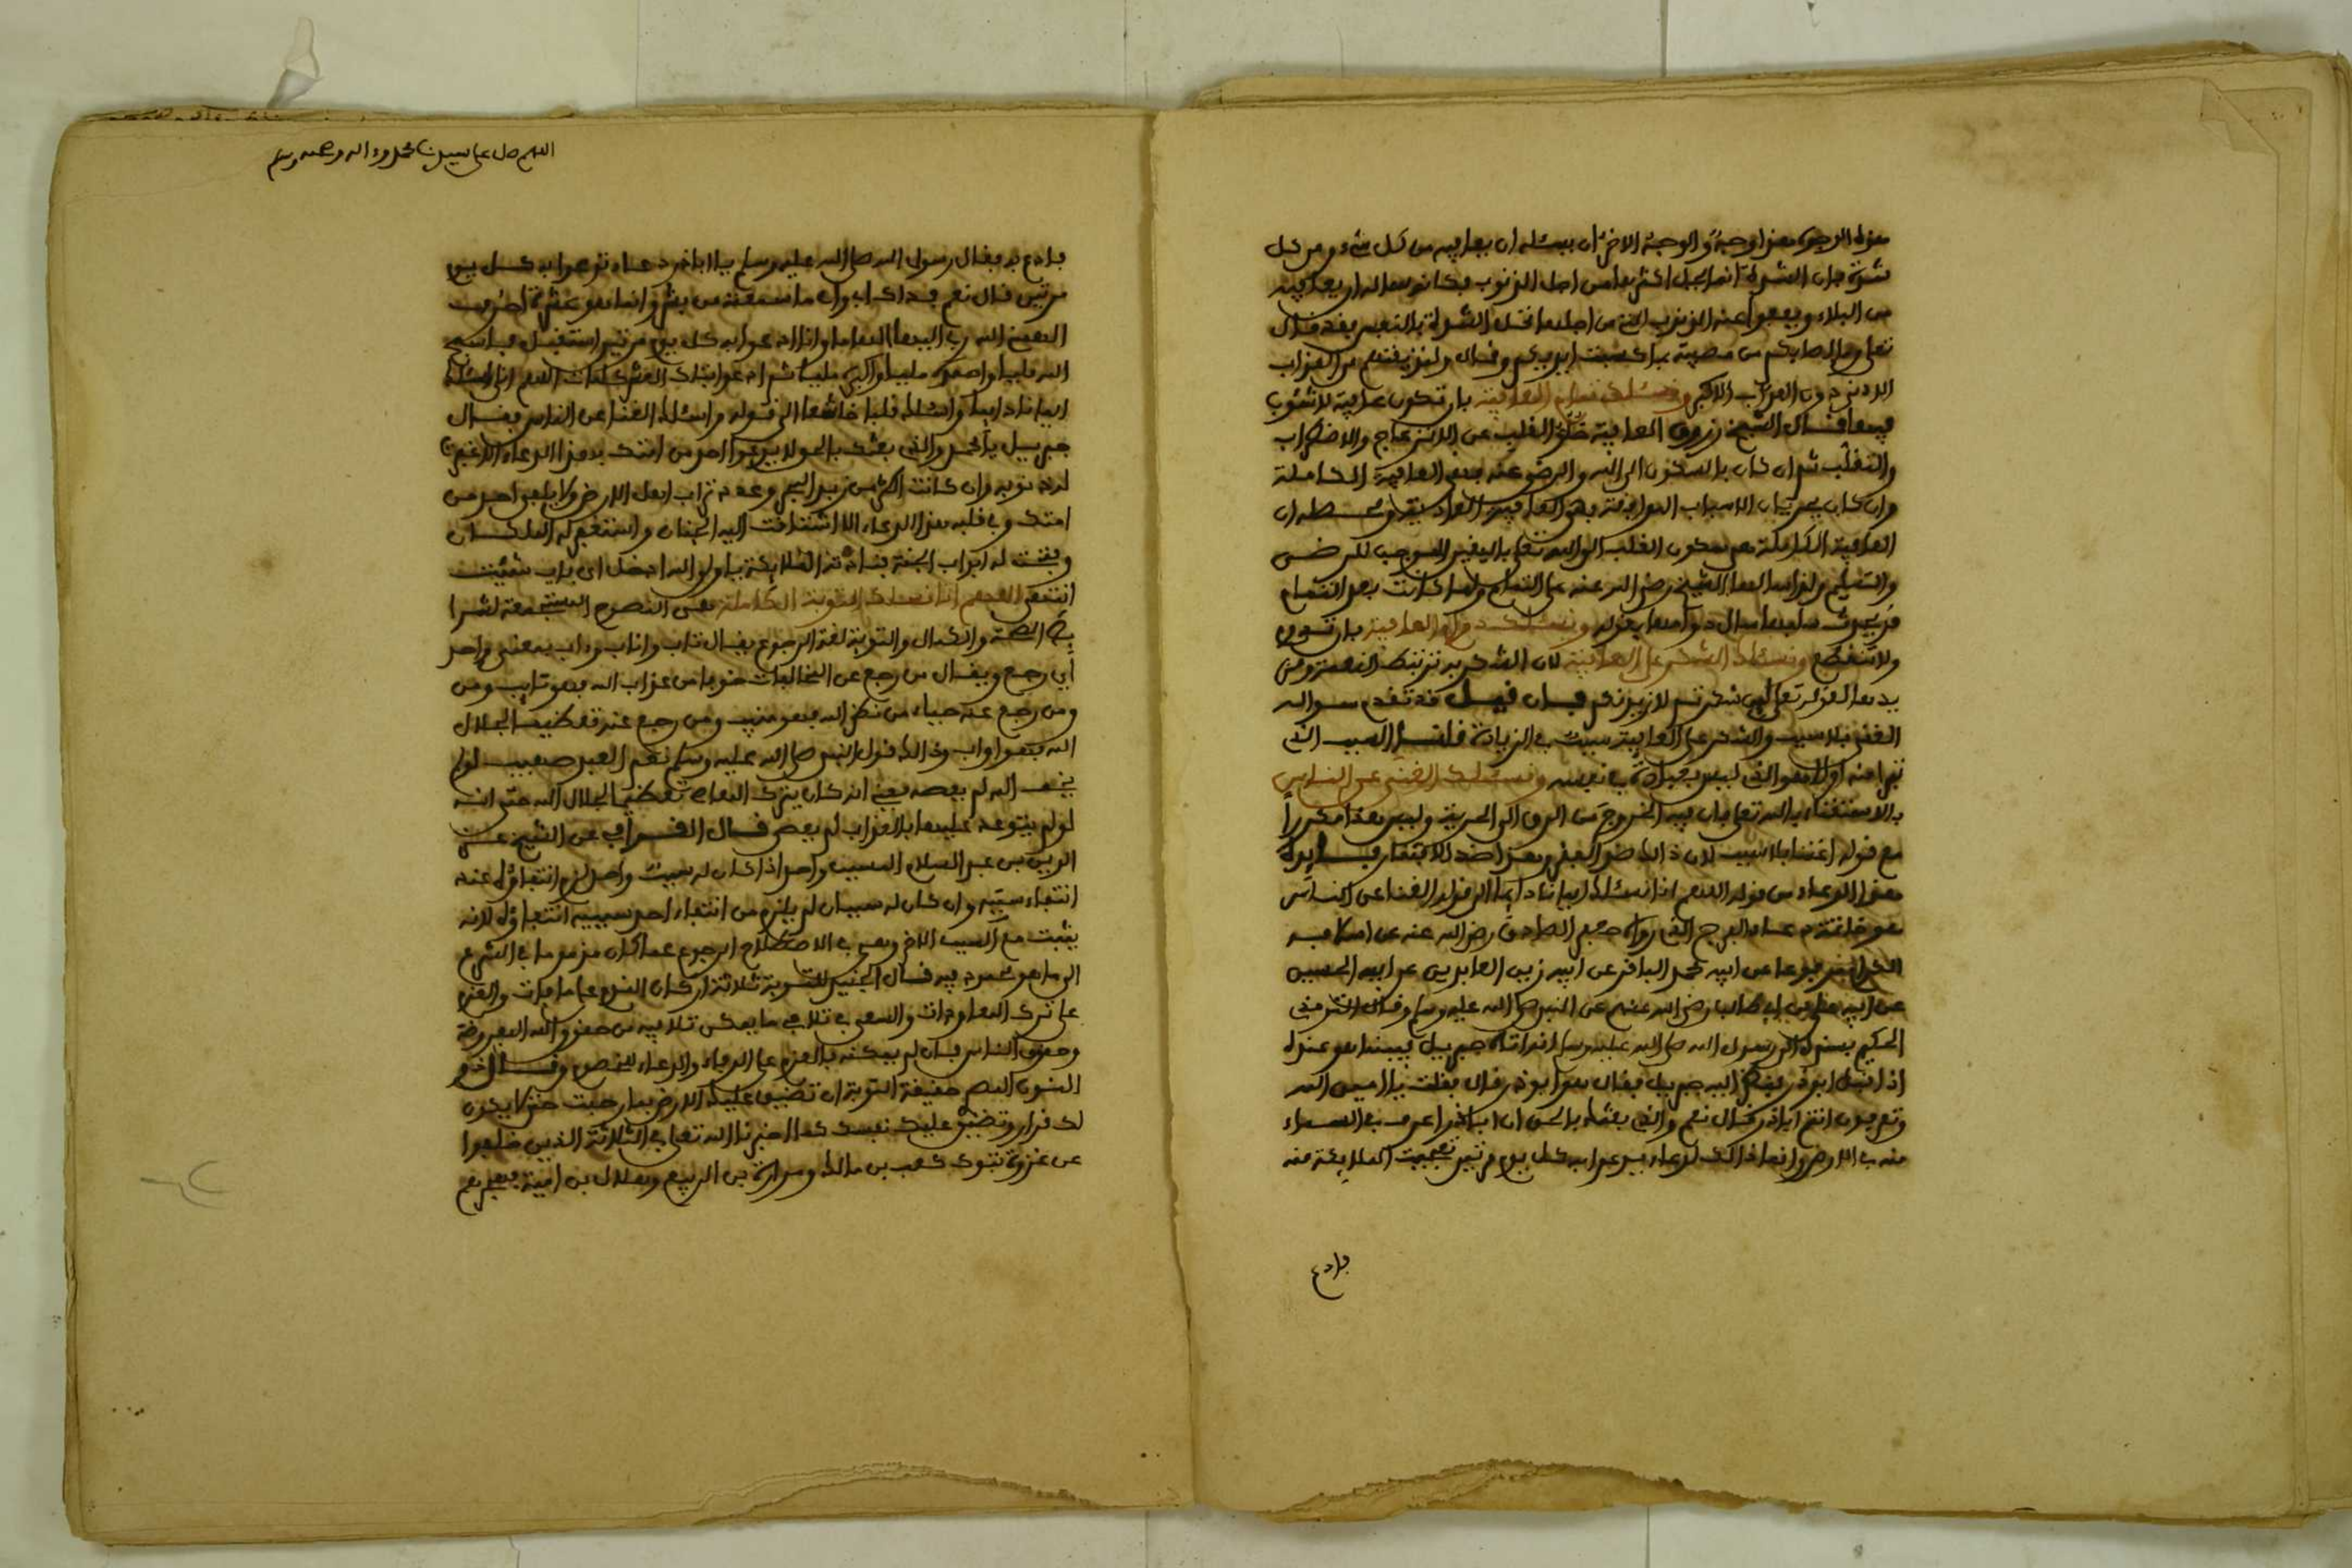 هذه الوجوه هذا وجه والوجه الاخر ان يسئله ان يعافيه من كل شيء ومن كل
شدة فان الشدة انما يحل اكثرها من اجل الذنوب فكانه سأله ان يعافيه
من البلاء ويعفوا عنه الذنوب التي من اجلها تحل الشدة بالنفس فقد قال
تعلى وما اصابكم من مصيبة بما كسبت ايديكم وقال ولنذيقنهم من العذاب
الادنى دون العذاب الاكبر ونسئلك تمام العافية بان تكون عافية لا شوب
فيها قال الشيخ زروق العافية خلو القلب عن الانزعاج والاضطراب
والتقلب ثم ان كان بالسكون الى الله والرضى عنه فهي العافية الكاملة
وان كان بجريان الاسباب الموافقة فهي العافية العادية
العافية الكاملة هي سكون القلب الى الله تعلى باليقين الموجب للرضى
والتسليم ولذا سألها الشيخ رضي الله عنه على التمام ولما كانت بعد التمام
قد يحدث سلبها سأل دوامها بقوله ونسئلك دوام العافية بان تدوم
ولا تنقطع ونسئلك الشكر على العافية لان الشكر به ترتبط النعمة ومن
يدها لقوله تعلى لين شكرتم لازيدنكم فان قيل قد تقدم سواله
الغنى بلا سبب والشكر على العافية سبب في الزيادة قلنا السبب الذي
تبرأ منه اولا هو الذي ليس بعبادة في نفسه ونسئلك الغنى عن الناس
بالاستغناء بالله تعلى فان فيه الخروج من الرق الى الحرية وليس هذا مكررا
مع قوله اغننا بلا سبب لان ذالك ضد الفقر وهذا ضد الافتقار
هذا الدعاء من قوله اللهم انا نسئلك ايمانا دايما الى قوله الغنا عن الناس
هو خاتمة دعاء الفرج الذي رواه جعفر الصادق رضي الله عنه عن اسلافه
الكرام مرفوعا عن ابيه محمد الباقر عن ابيه زين العابدين عن ابيه الحسين
عن ابيه علي بن ابي طالب رضي الله عنهم عن النبي صلى الله عليه وسلم وقال الترمذي
الحكيم بسنده الى رسول الله صلى الله عليه وسلم انه اتاه جبريل فبينما هو عنده
اذ اقبل ابو ذر فنظر اليه جبريل فقال هو ابو ذر قال فقلت يا امين الله
وتعرفون انتم اباذر قال نعم والذي بعثك بالحق ان اباذر اعرف في السماء
منه في الارض وانما ذالك لدعاء يدعوا به كل يوم مرتين تعجبت الملايكة منه
فادع
اللهم صل على سيدنا محمد وءاله وصحبه وسلم
فادع به فقال رسول الله صلى الله عليه وسلم يا اباذر دعاء تدعوا به كل يوم
مرتين قال نعم فداك ابي وامي ما سمعته من بشر وانما هو عشرة احرف
الهمني الله ربي اليها الهاما وانا ادعوا به كل يوم مرتين استقبل فاسبح
الله مليا واحمده مليا واكبره مليا ثم ادعوا بتلك العشر كلمات اللهم اني اسئلك
ايمانا دايما واسئلك قلبا خاشعا الى قوله واسئلك الغنا عن الناس فقال
جبريل يا محمد والذي بعثك بالحق لا يدعوا احد من امتك بهذا الدعاء الا غفرت
له ذنوبه وان كانت اكثر من زبد البحر وعدد تراب اهل الارض ولا يلقى احد من
امتك وفي قلبه هذا الدعاء الا اشتاقت اليه الجنان واستغفر له الملكان
وفتحت له ابواب الجنة فنادته الملايكة يا ولي الله ادخل اي باب شيت
انتهى اللهم انا نسئلك التوبة الكاملة هي النصوح المستجمعة لشرا
يط الصحة والكمال والتوبة لغة الرجوع يقال تاب واناب وءاب بمعنى واحد
أي رجع ويقال من رجع عن المخالفات خوفا من عذاب الله فهو تايب ومن
ومن رجع عنه حياء من نظر الله فهو منيب ومن رجع عنه تعظيما لجلال
الله فهو اواب وذالك قول النبي صلى الله عليه وسلم نعم العبد صهيب لو لم
يخف الله لم يعصه يعني انه كان يترك المعاصي تعظيما لجلال الله حتى انه
لو لم يتوعد عليها بالعذاب لم يعص قال القرافي عن الشيخ عز
الدين بن عبد السلام المسبب واحد اذا كان له سبب واحد لزم انتفاؤه عند
انتفاء سببه وان كان له سببان لم يلزم من انتفاء احد سببيه انتفاؤه لانه
يثبت مع السبب الاخر وهي في الاصطلاح الرجوع عما كان مذموما في الشرع
الى ما هو محمود فيه قال الجنيد للتوبة ثلاثة اركان الندم على ما فات والعزم
على ترك المعاودات والسعي في تلافي ما يمكن تلافيه من حقوق الله المفروضة
وحقوق الناس فان لم يمكنه فالعزم على الوفاء والدعاء للخصوم وقال ذو
النون المصري حقيقة التوبة ان تضيق عليك الارض بما رحبت حتى لا يكون
لك قرار وتضيق عليك نفسك كما اخبرنا الله تعلى في الثلاثة الذين خلفوا
عن غزوة تبوك كعب بن مالك ومرارة بن الربيع وهلال بن امية